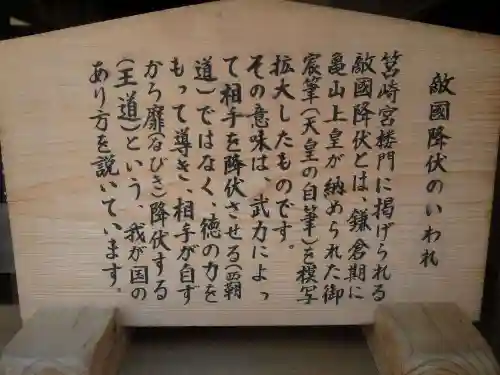 敵國降伏のいわれ
筥崎宮楼門に掲げられる
敵國降伏とは、鎌倉期に
亀山上皇が納められた御
宸筆(天皇の自筆)を模写
拡大したものです。
その意味は、武力によっ
て相手を降伏させる(覇
道)ではなく、徳の力を
もって導き、相手が自ず
から靡(なびき)降伏する
(王道)という、我が国の
あり方を説いています。